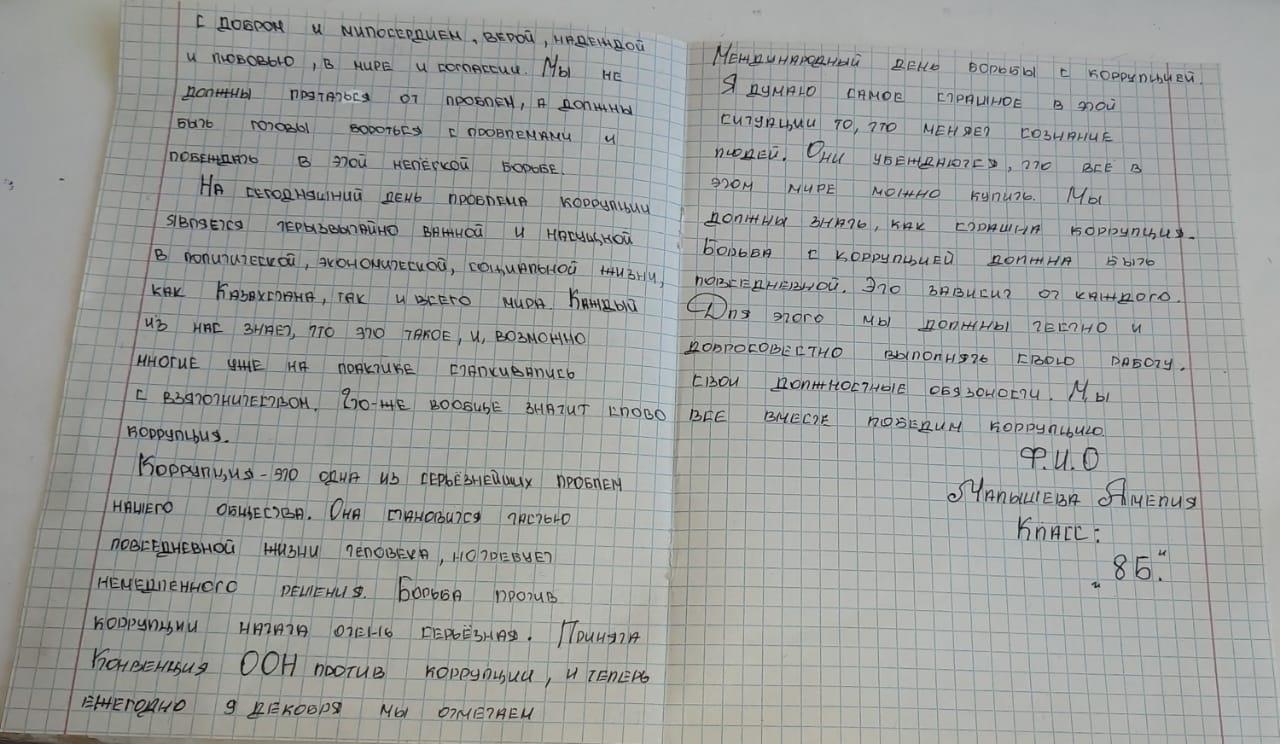 с добром и милосердием, верой, надеждой
и любовью, в мире и согласии. Мы не
должны прятаться от проблем, а должны
быть готовы бороться с проблемами и
побеждать в этой нелёгкой борьбе.
На сегодняшний день проблема коррупции
является черызвычайно важной и насущной
в политической, экономической, социальной жизни,
как Казахстана, так и всего мира. Каждый
из нас знает, что это такое, и, возможно
многие уже на практике сталкивались
с взяточничеством. Что-же вообще значит слово
коррупция.
Коррупция - это одна из серьёзнейших проблем
нашего общества. Она становится частью
повседневной жизни человека, но требует
немедленного решения. Борьба против
коррупции начата очень серьёзная. Принята
Конвенция ООН против коррупции, и теперь
ежегодно 9 декобря мы отмечаем
Международный день борьбы с коррупцией.
Я думаю самое страшное в этой
ситуации то, что меняет сознание
людей. Они убеждаются, что всё в
этом мире можно купить. Мы
должны знать, как страшна коррупция.
Борьба с коррупцией должна быть
повседневной. Это зависит от каждого.
Для этого мы должны честно и
добросовестно выполнять свою работу.
свои должностные обязоности. Мы
все вместе победим коррупцию.
Ф.И.О
Малышева Амелия
Класс:
„8Б."